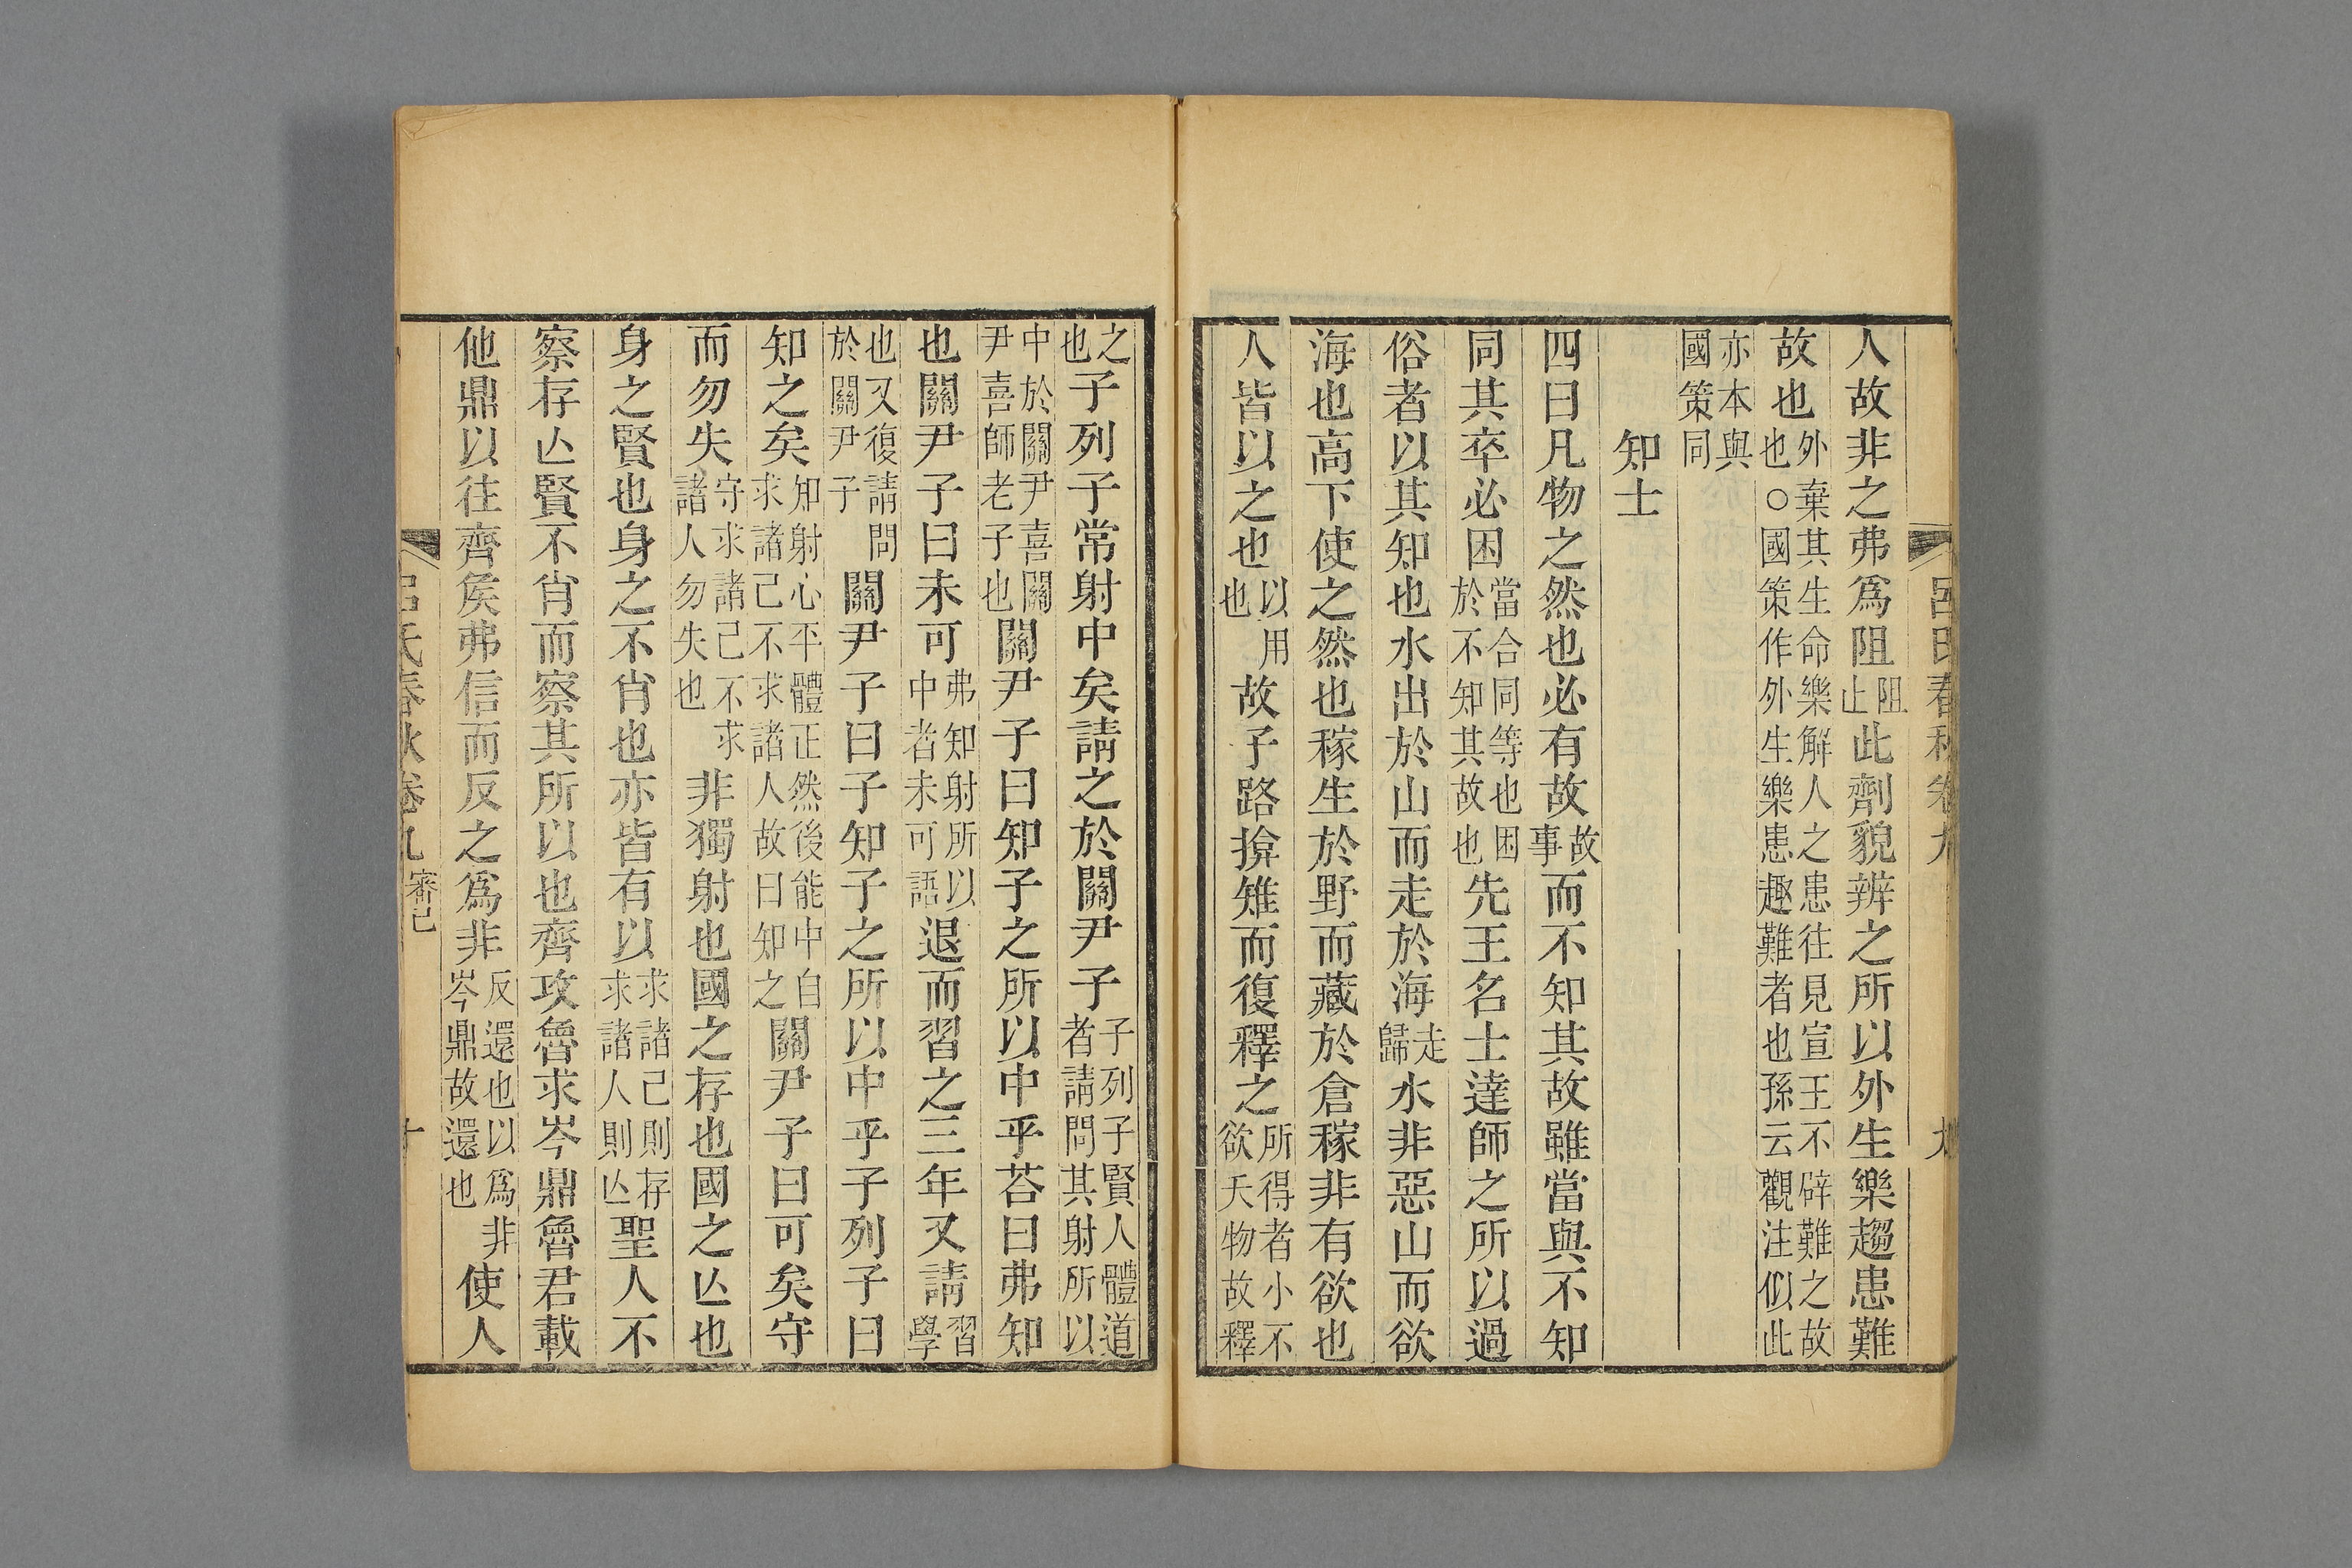 呂氏春秋卷九 九
人故非之弗爲阻阻止此劑貌辨之所以外生樂趨患難
故也外棄其生命樂解人之患往見宣王不辟難之故也○國策作外生樂患趣難者也孫云觀注似此
亦本與國策同
知士
四曰凡物之然也必有故故事而不知其故雖當與不知
同其卒必困當合同等也困於不知其故也先王名士達師之所以過
俗者以其知也水出於山而走於海走歸水非惡山而欲
海也高下使之然也稼生於野而藏於倉稼非有欲也
人皆以之也以用也故子路揜雉而復釋之所得者小不欲夭物故釋
之也子列子常射中矣請之於關尹子子列子賢人體道者請問其射所以
中於關尹喜關尹喜師老子也關尹子曰知子之所以中乎荅曰弗知
也關尹子曰未可弗知射所以中者未可語退而習之三年又請習學
也又復請問於關尹子關尹子曰子知子之所以中乎子列子曰
知之矣知射心平體正然後能中自求諸己不求諸人故曰知之關尹子曰可矣守
而勿失守求諸己不求諸人勿失也非獨射也國之存也國之亾也
身之賢也身之不肖也亦皆有以求諸己則存求諸人則亾聖人不
察存亾賢不肖而察其所以也齊攻魯求岑鼎魯君載
他鼎以往齊矦弗信而反之爲非反還也以爲非岑鼎故還也使人
呂氏春秋卷九 審己 十